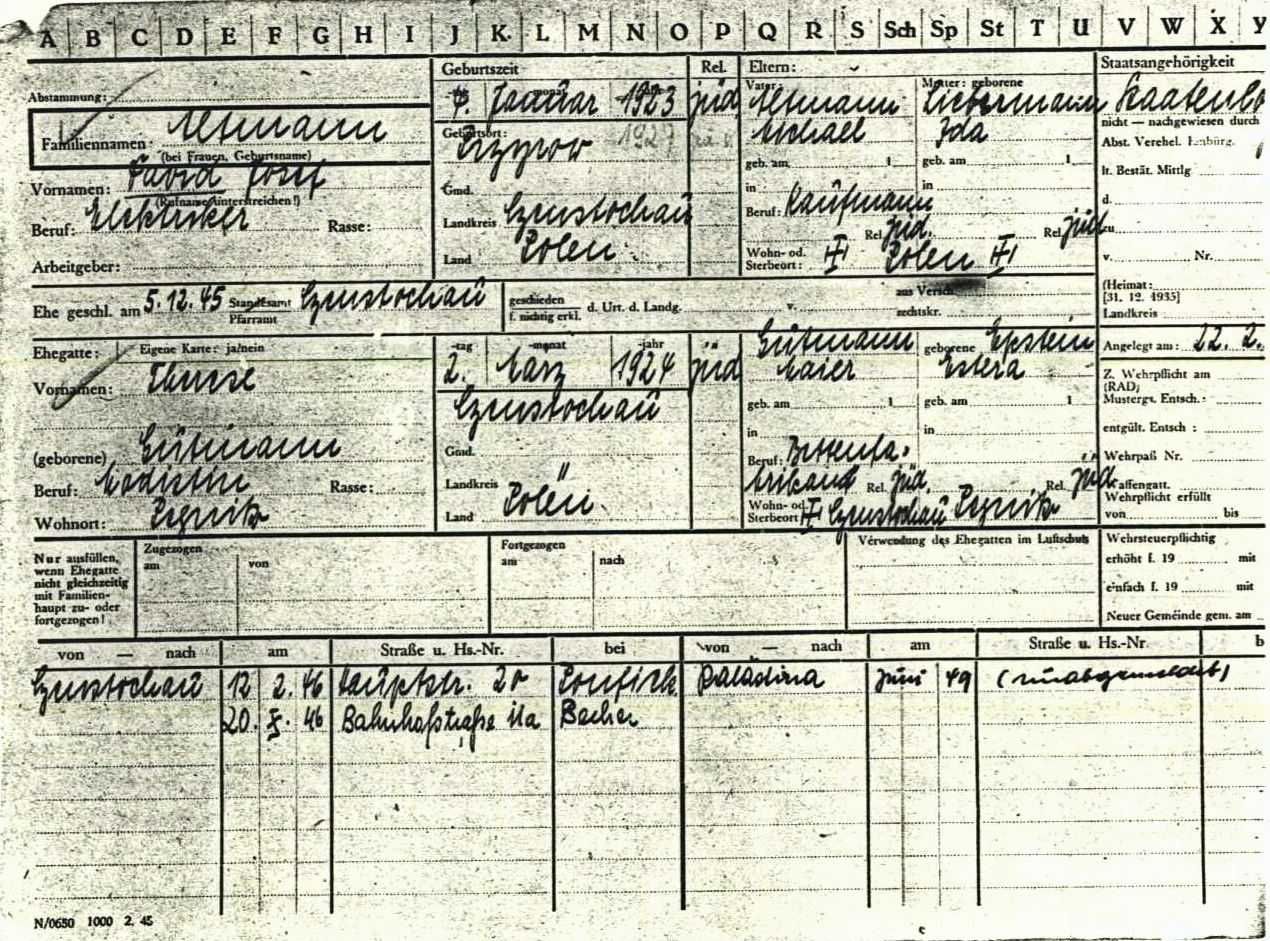 A B C D E F G H I J K L M N O P Q R S Sch Sp St T U V W X Y
Abstammung:
Familiennamen: Altmann
(bei Frauen, Geburtsname)
Vornamen: David Josef
(Rufname unterstreichen!)
Beruf: Elektriker Rasse:
Arbeitgeber:
Geburtszeit
Januar 1923
Geburtsort:
1927
Gmd.
Landkreis Czenstochau
Land Polen
Rel.
jüd
Eltern:
Vater: Altmann Mutter: geborene Liebermann
Michael Ida
geb. am 1 geb. am 1
in in
Beruf: Kaufmann
Rel. jüd. Rel. jüd
Wohn- od.
Sterbeort: Polen
Staatsangehörigkeit
Staatenlo
nicht — nachgewiesen durch
Abst. Verehel. Einbürg.
lt. Bestät. Mittlg
d.
zu
v. Nr.
(Heimat:
[31. 12. 1935]
Landkreis
Ehe geschl. am 5. 12. 45 Standesamt Czenstochau
Pfarramt
geschieden
f. nichtig erkl. d. Urt. d. Landg. v. aus Versch.
rechtskr.
Ehegatte: Eigene Karte: ja/nein
Vornamen:
(geborene) Gutmann
Beruf: Modistin Rasse:
Wohnort: Pegnitz
-tag -monat -jahr
2. März 1924 jüd
Czenstochau
Gmd.
Landkreis
Land Polen
Gutmann geborene Epstein
Maier Estera
geb. am 1 geb. am 1
in in
Beruf:
Rel. jüd. Rel. jüd
Wohn- od.
Sterbeort Czenstochau Pegnitz
Angelegt am: 22. 2.
Z. Wehrpflicht am
(RAD)
Mustergs. Entsch.:
entgült. Entsch :
Wehrpaß Nr.
Waffengatt.
Wehrpflicht erfüllt
von bis
Nur ausfüllen,
wenn Ehegatte
nicht gleichzeitig
mit Familien-
haupt zu- oder
fortgezogen!
Zugezogen
am von
Fortgezogen
am nach
Verwendung des Ehegatten im Luftschutz
Wehrsteuerpflichtig
erhöht f. 19 mit
einfach f. 19 mit
Neuer Gemeinde gem. am
von — nach am Straße u. Hs.-Nr. bei von — nach am Straße u. Hs.-Nr. b
Czenstochau 12 2. 46 Hauptstr. 20 Ponfick Palästina Juni 49
20. X. 46 Bahnhofstraße 11a Becher
N/0650 1000 2. 45